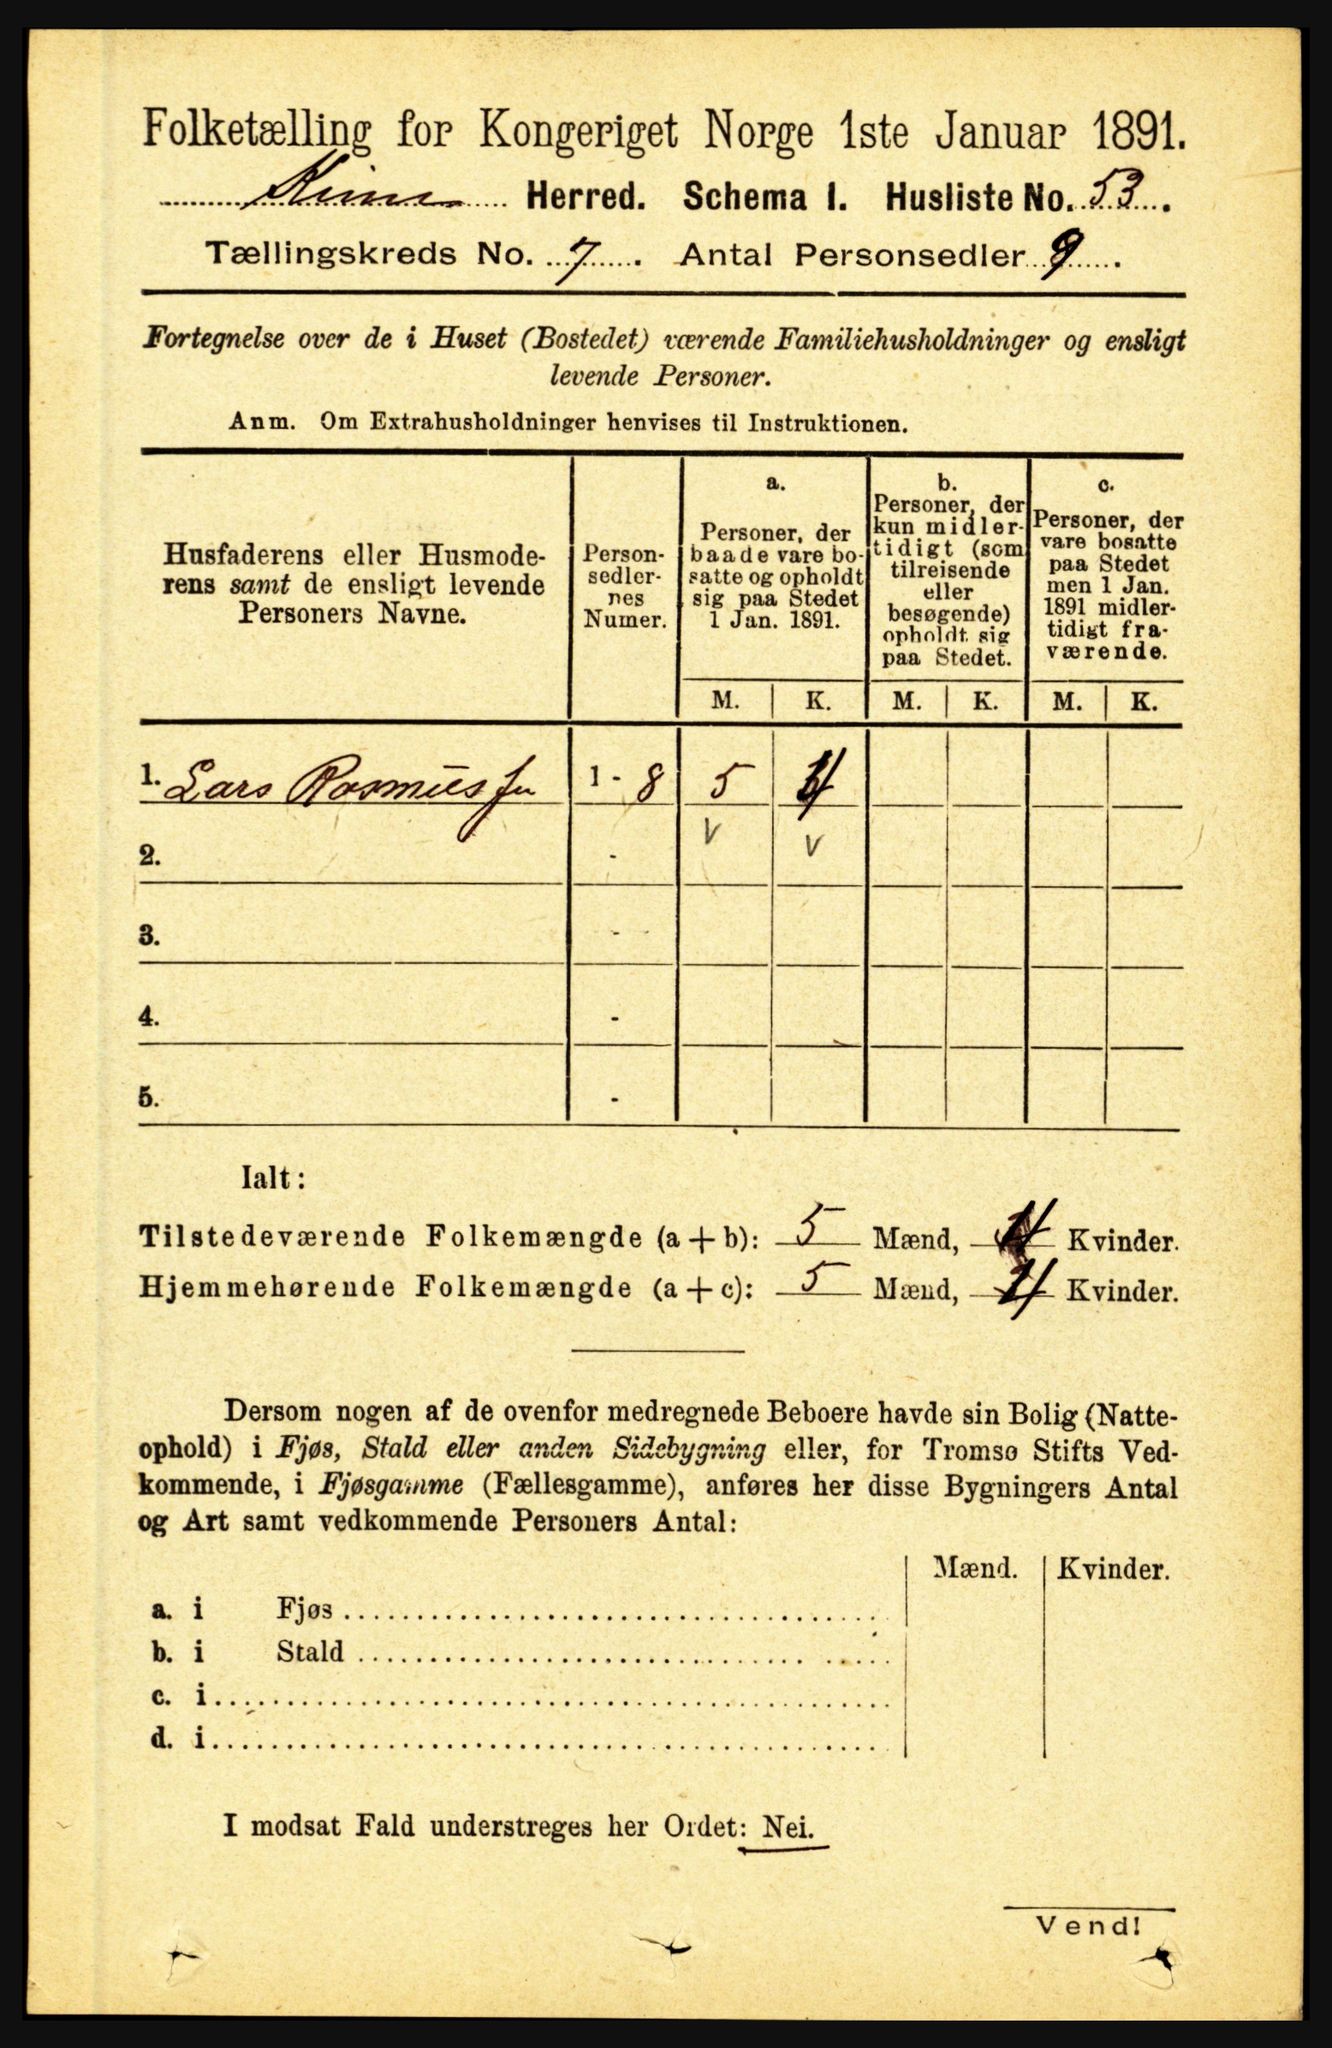 Folketælling for Kongeriget Norge 1ste Januar 1891.
Kinn Herred. Schema I. Husliste No. 53.
Tællingskreds No. 7. Antal Personsedler 9.
Fortegnelse over de i Huset (Bostedet) værende Familiehusholdninger og ensligt
levende Personer.
Anm. Om Extrahusholdninger henvises til Instruktionen.
Husfaderens eller Husmode-
rens samt de ensligt levende
Personers Navne.
Person-
sedler-
nes
Numer.
a.
Personer, der
baade vare bo-
satte og opholdt
sig paa Stedet
1 Jan. 1891.
b.
Personer, der
kun midler-
tidigt (som
tilreisende
eller
besøgende)
opholdt sig
paa Stedet.
c.
Personer, der
vare bosatte
paa Stedet
men 1 Jan.
1891 midler-
tidigt fra-
værende.
M. K. M. K. M. K.
1. Lars Rasmussen 1 - 8 5 4
v v
2. -
3. - -
4. -
5. -
Ialt:
Tilstedeværende Folkemængde (a + b): 5 Mænd, 4 Kvinder.
Hjemmehørende Folkemængde (a + c): 5 Mænd, 4 Kvinder.
Dersom nogen af de ovenfor medregnede Beboere havde sin Bolig (Natte-
ophold) i Fjøs, Stald eller anden Sidebygning eller, for Tromsø Stifts Ved-
kommende, i Fjøsgamme (Fællesgamme), anføres her disse Bygningers Antal
og Art samt vedkommende Personers Antal:
Mænd. Kvinder.
a. i Fjøs
b. i Stald
c. i
d. i
I modsat Fald understreges her Ordet: Nei.
Vend!